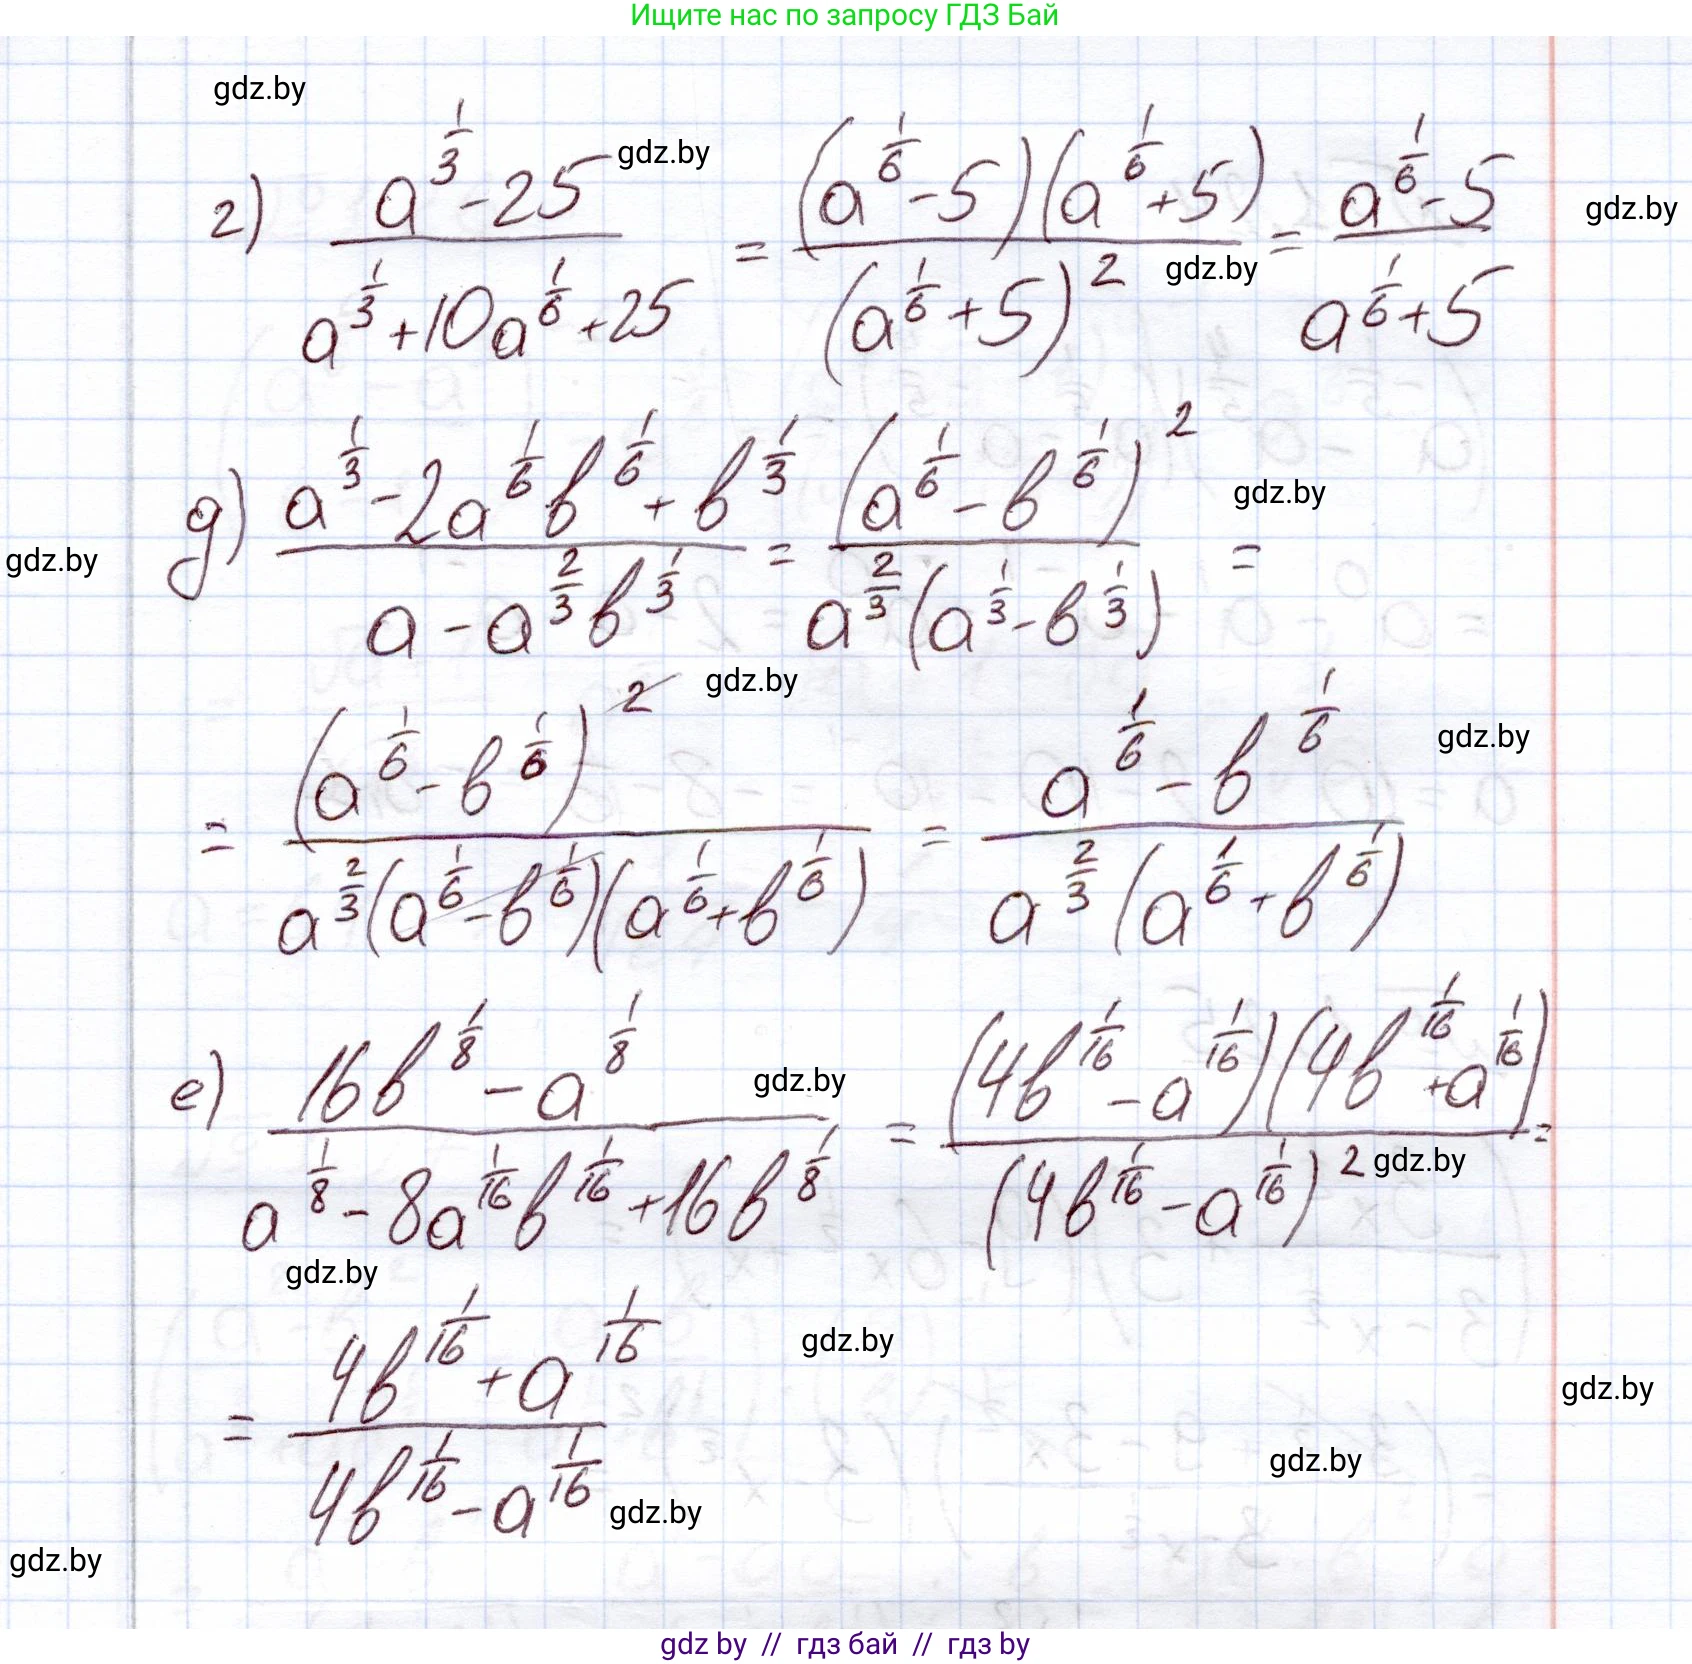 Ищите нас по запросу ГДЗ Бай
gdz.by
г) (a^(1/3) - 25)/(a^(1/3) + 10a^(1/6) + 25) = ((a^(1/6) - 5)(a^(1/6) + 5))/(a^(1/6) + 5)^2 = (a^(1/6) - 5)/(a^(1/6) + 5)
gdz.by
gdz.by
gdz.by
д) (a^(1/3) - 2a^(1/6)b^(1/6) + b^(1/3))/(a - a^(2/3)b^(1/3)) = (a^(1/6) - b^(1/6))^2/(a^(2/3)(a^(1/3) - b^(1/3))) =
gdz.by
gdz.by
gdz.by
= (a^(1/6) - b^(1/6))^2/(a^(2/3)(a^(1/6) - b^(1/6))(a^(1/6) + b^(1/6))) = (a^(1/6) - b^(1/6))/(a^(2/3)(a^(1/6) + b^(1/6)))
gdz.by
е) (16b^(1/8) - a^(1/8))/(a^(1/8) - 8a^(1/16)b^(1/16) + 16b^(1/8)) = ((4b^(1/16) - a^(1/16))(4b^(1/16) + a^(1/16)))/(4b^(1/16) - a^(1/16))^2 =
gdz.by
gdz.by
gdz.by
= (4b^(1/16) + a^(1/16))/(4b^(1/16) - a^(1/16))
gdz.by
gdz.by
gdz.by
gdz.by
gdz.by
gdz by // гдз бай // гдз by